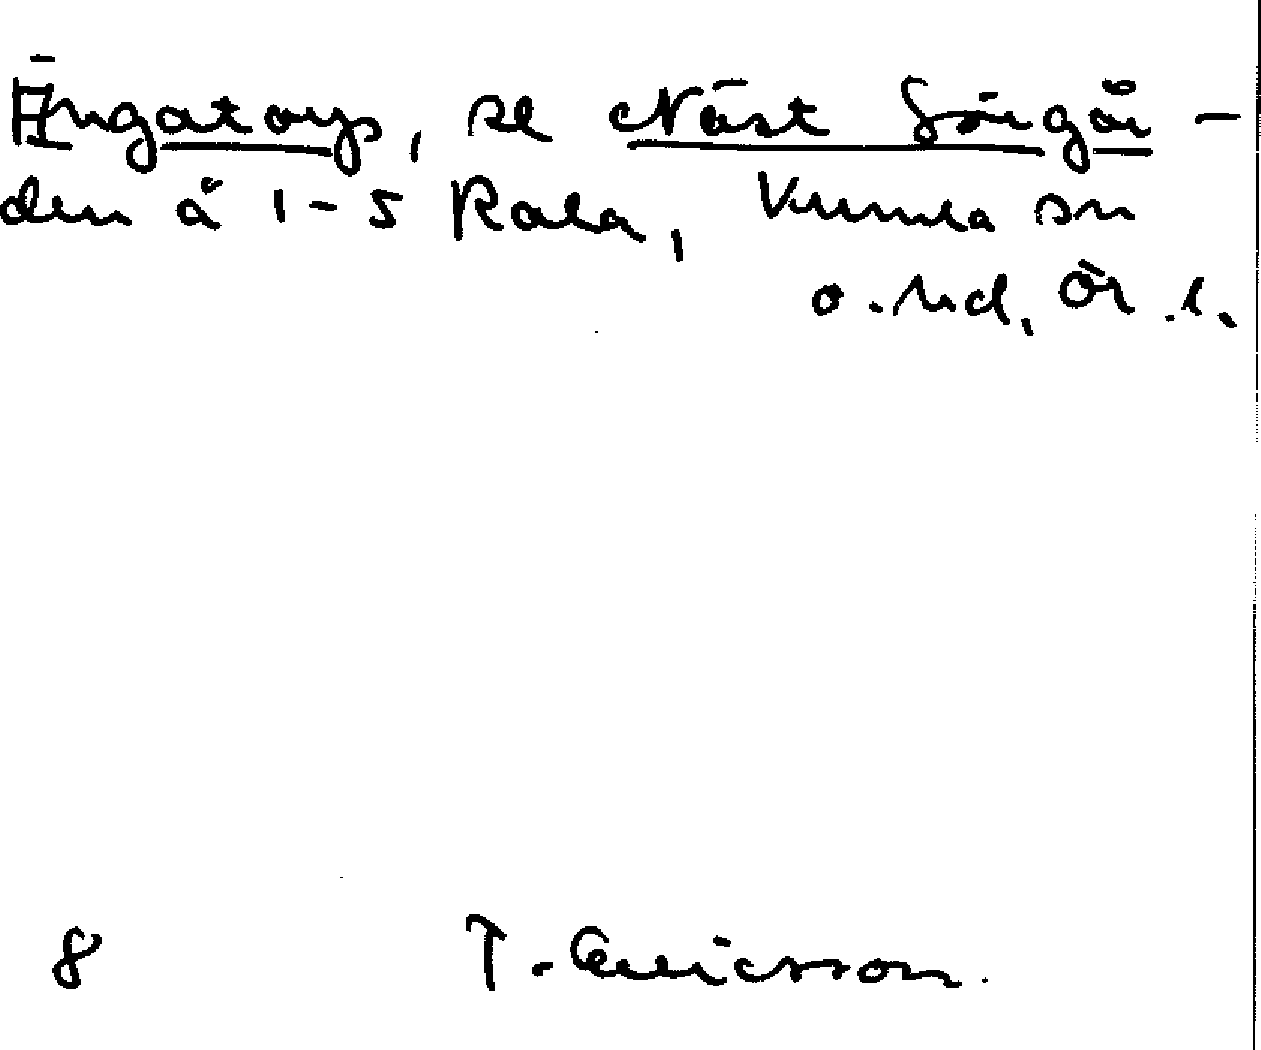 Ängatorp, se Näst Sörgår-
den å 1-5 Rala, Kumla sn
o. hd, Ör. l.
8 T. Ericsson.